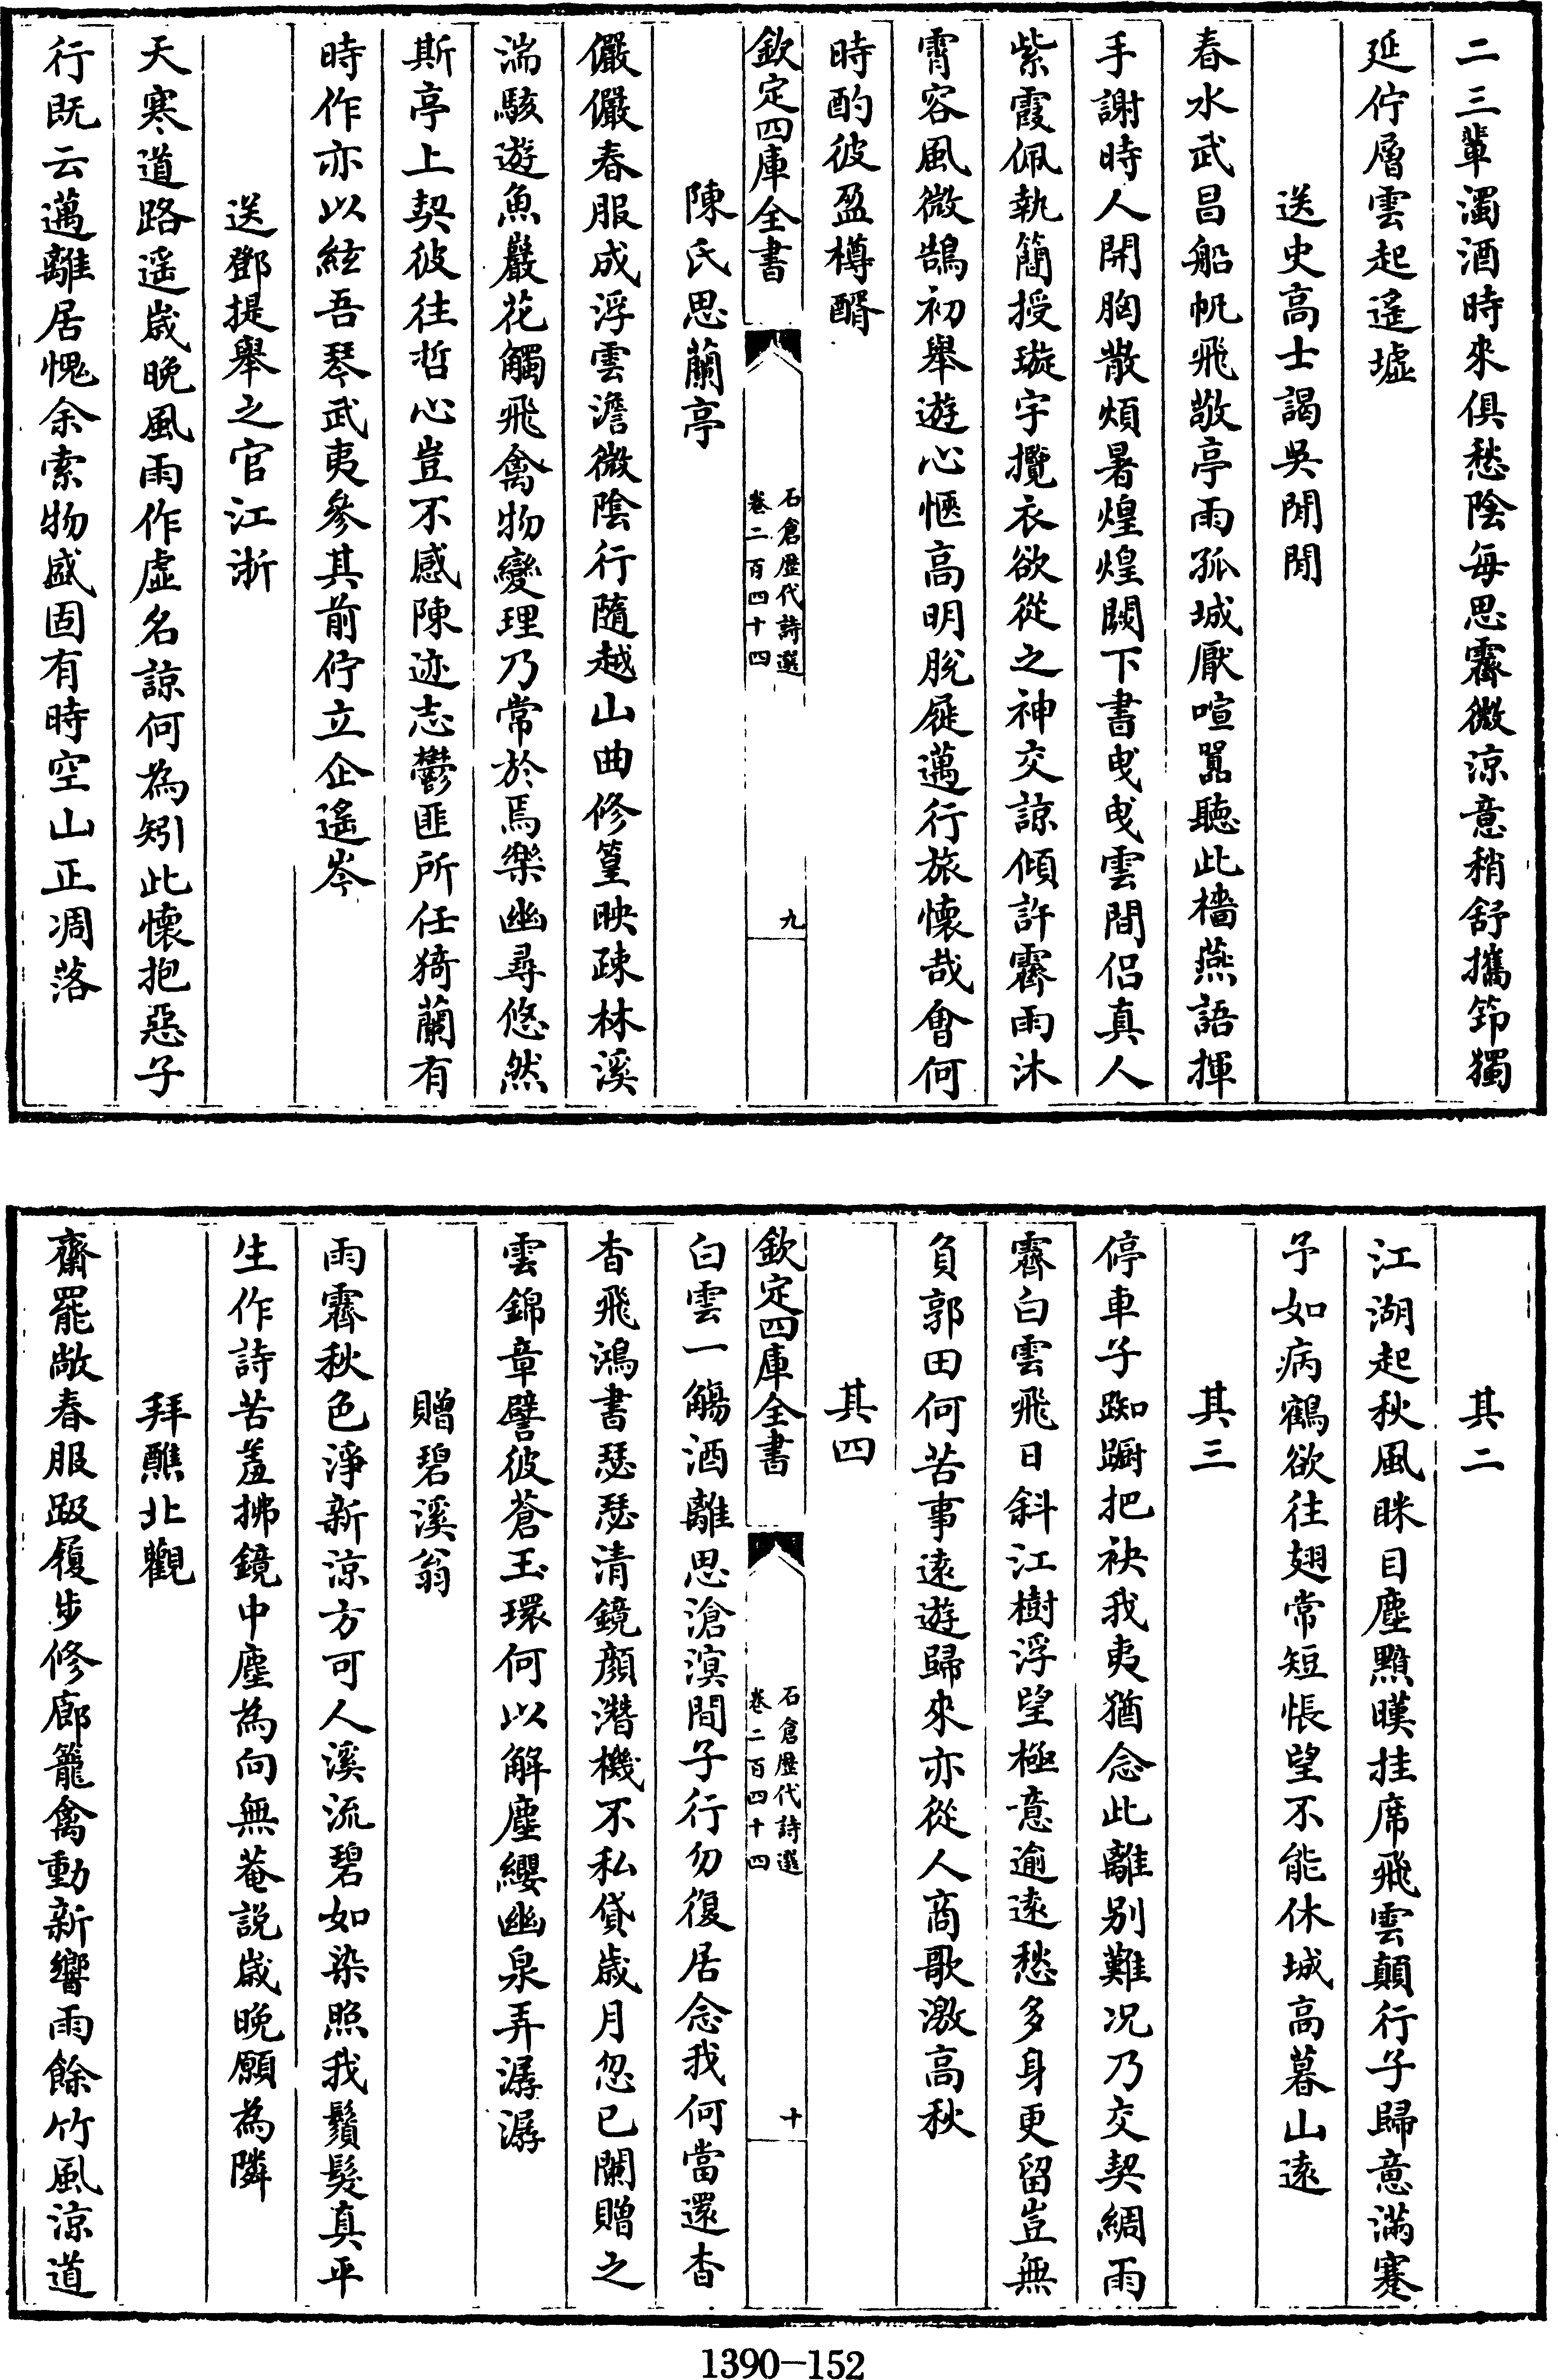 二三輩濁酒時來俱愁陰每思霽微涼意稍舒攜笻獨
延佇層雲起遙墟
送史高士謁吳閒閒
春水武昌船帆飛敬亭雨孤城厭喧囂聽此檣燕語揮
手謝時人開胸散煩暑煌煌闕下書曵曵雲間侣真人
紫霞佩執簡授璇宇攬衣欲從之神交諒傾許霽雨沐
霄容風微鵠初舉遊心愜高明脫屣邁行旅懷哉會何
時酌彼盈樽醑
欽定四庫全書
石倉歷代詩選
卷二百四十四
九
陳氏思蘭亭
儼儼春服成浮雲澹微陰行隨越山曲修篁映疎林溪
湍駭遊魚巖花觸飛禽物變理乃常於焉樂幽尋悠然
斯亭上契彼往哲心豈不感陳迹志鬱匪所任猗蘭有
時作亦以絃吾琴武夷參其前佇立企遙岑
送鄧提舉之官江浙
天寒道路遥嵗晚風雨作虛名諒何為矧此懷抱惡子
行既云邁離居愧余索物盛固有時空山正凋落
其二
江湖起秋風眯目塵黯暯挂席飛雲顛行子歸意滿蹇
予如病鶴欲往翅常短悵望不能休城高暮山遠
其三
停車子踟蹰把袂我夷猶念此離别難况乃交契綢雨
霽白雲飛日斜江樹浮望極意逾遠愁多身更留豈無
負郭田何苦事遠遊歸來亦從人商歌激高秋
其四
欽定四庫全書
石倉歷代詩選
卷二百四十四
十
白雲一觴酒離思滄溟間子行勿復居念我何當還杳
杳飛鴻書瑟瑟清鏡顔潛機不私貸嵗月忽已闌贈之
雲錦章譬彼蒼玉環何以解塵纓幽泉弄潺潺
贈碧溪翁
雨霽秋色淨新涼方可人溪流碧如染照我鬚髮真平
生作詩苦羞拂鏡中塵為向無菴説嵗晚願為隣
拜醮北觀
齋罷敞春服趿履步修廊籠禽動新響雨餘竹風涼道
1390—152